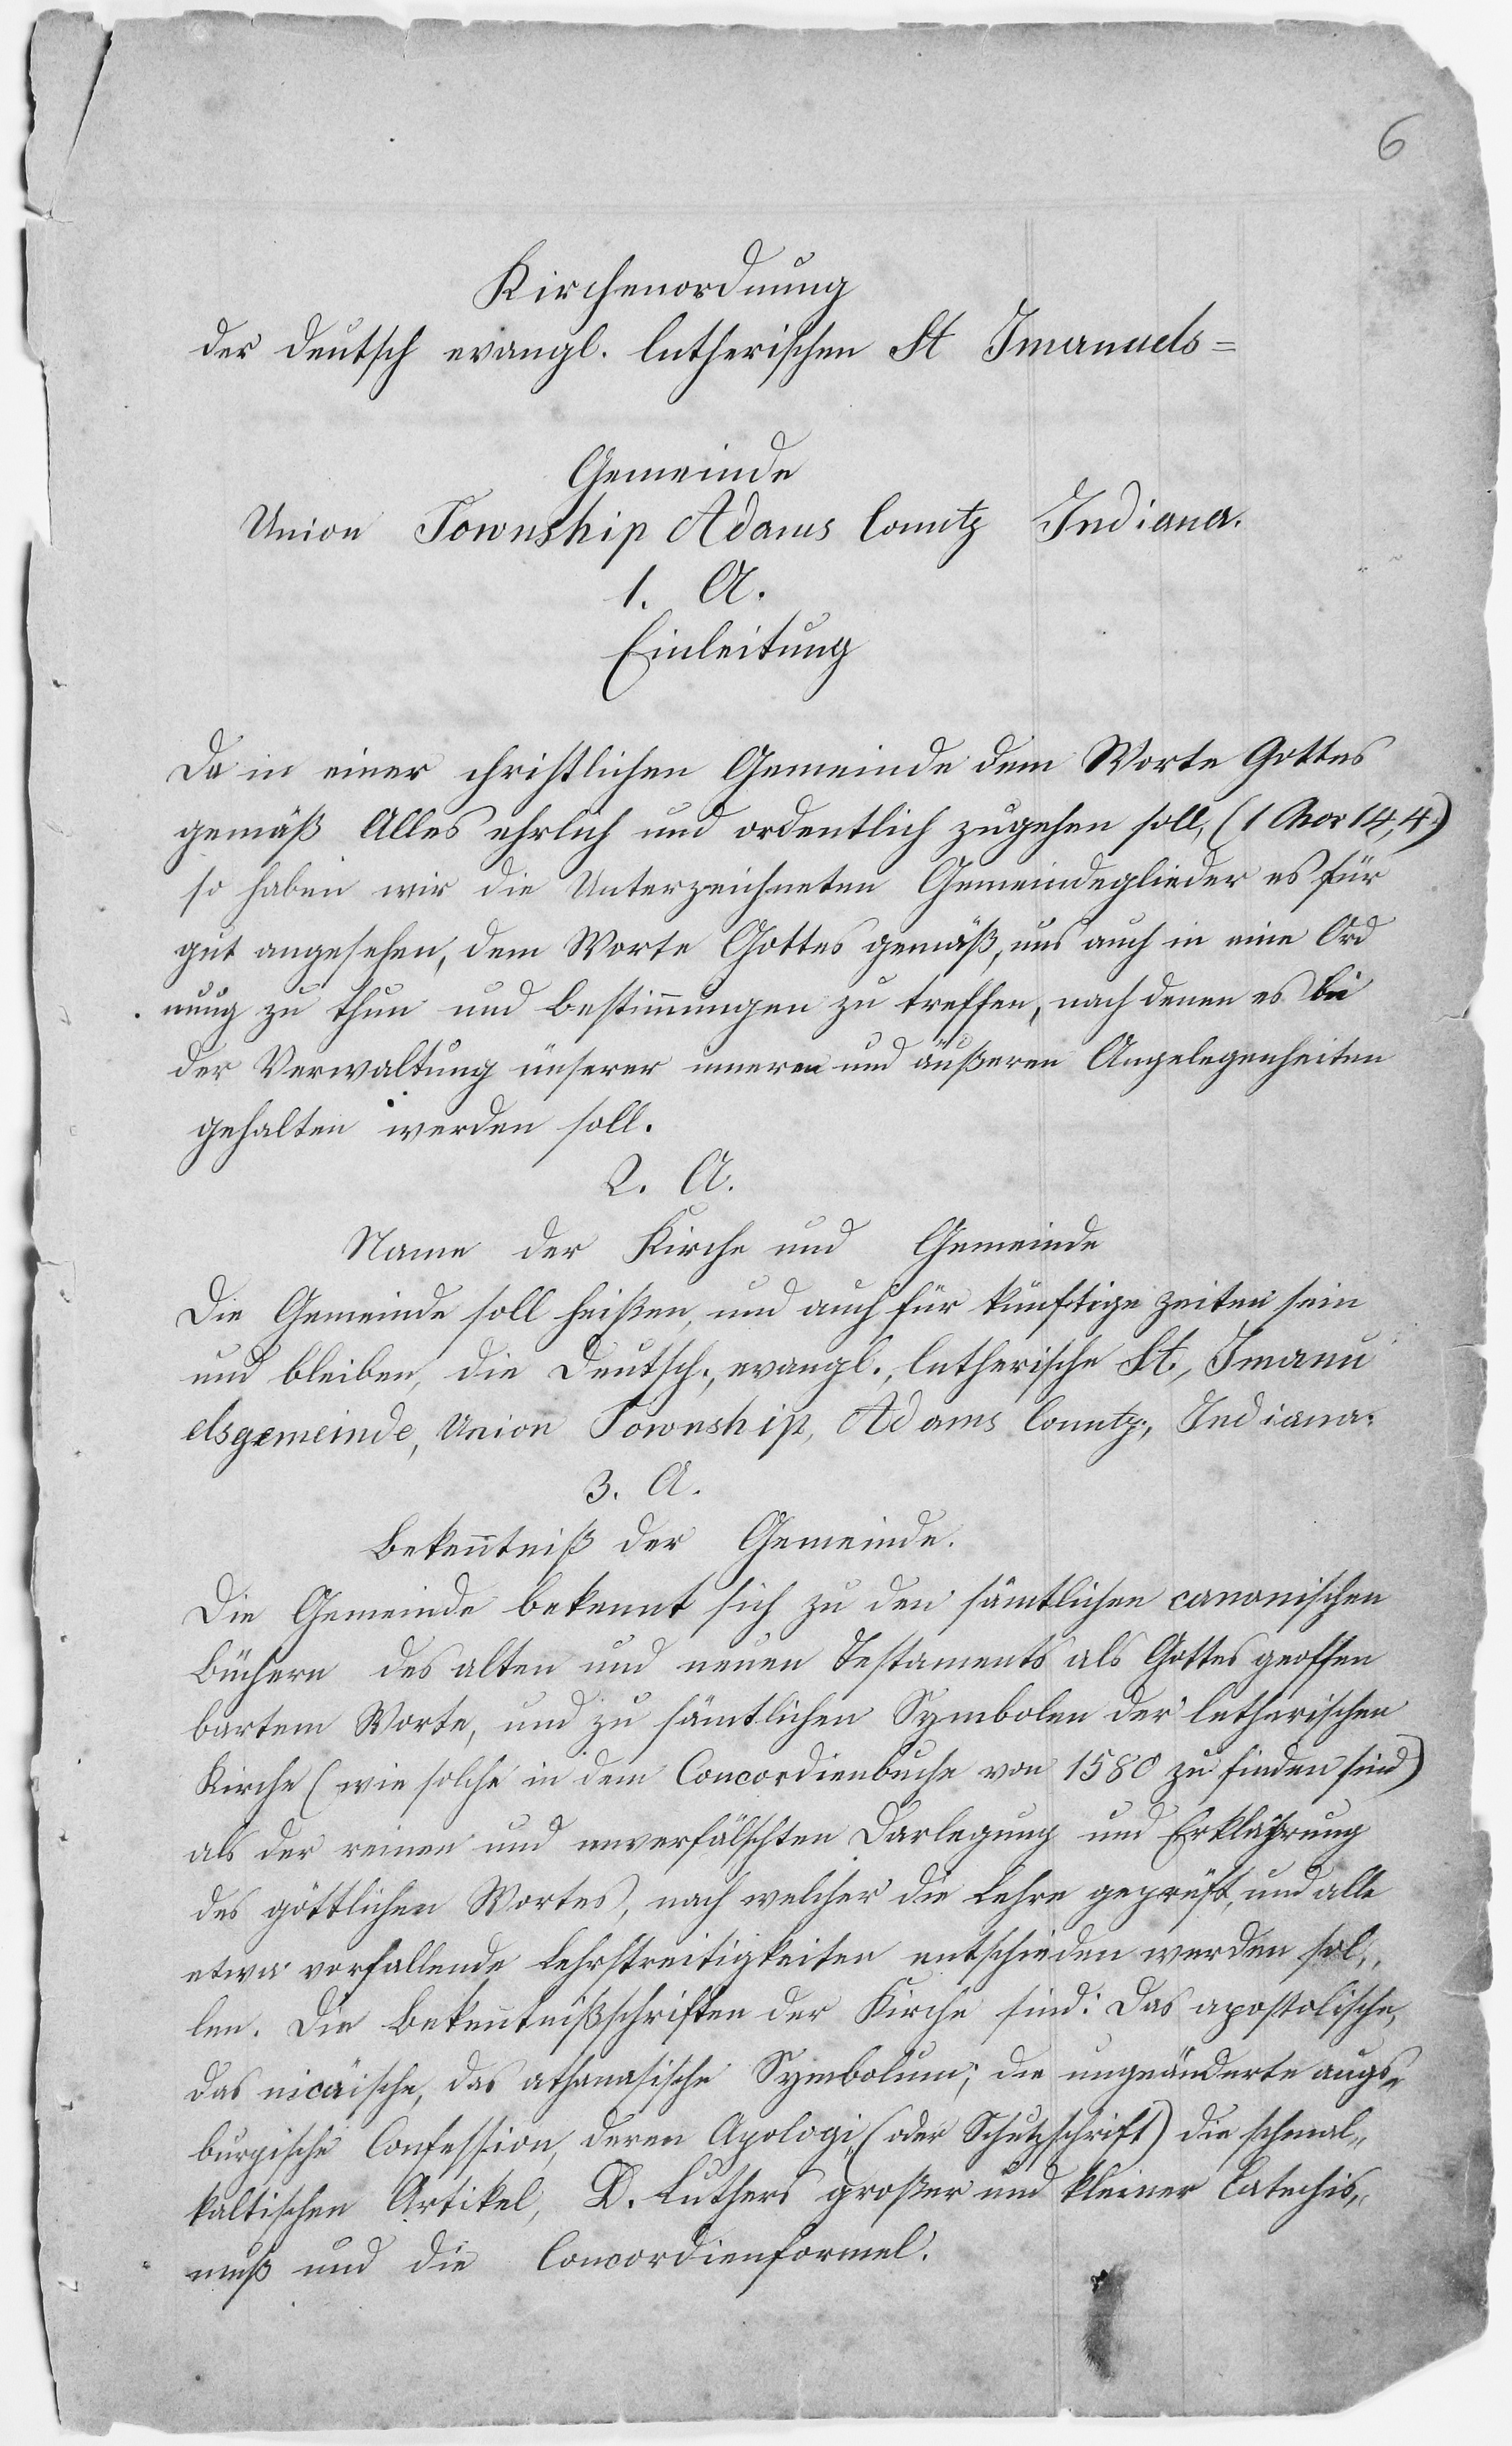 6
Kirchenordnung
der deutsch evangl. lutherischen St Imanuels=
Gemeinde
Union Township Adams County Indiana.
1. A.
Einleitung
Da in einer christlichen Gemeinde dem Worte Gottes
gemäß Alles ehrlich und ordentlich zugehen soll, (1 Cor 14,4.)
so haben wir die Unterzeichneten Gemeindeglieder es für
gut angesehen, dem Worte Gottes gemäß, uns auch in eine Ord
nung zu thun und Bestim̄ungen zu treffen, nach denen es bei
der Verwaltung unserer inneren und äußeren Angelegenheiten
gehalten werden soll.
2. A.
Name der Kirche und Gemeinde
Die Gemeinde soll heißen, und auch für künftige Zeiten sein
und bleiben, die Deutsch., evangl., lutherische St., Imanu
elsgemeinde, Union Township, Adams County., Indiana.
3. A.
Beken̄tniß der Gemeinde.
Die Gemeinde bekennt sich zu den sämtlichen canonischen
Büchern des alten und neuen Testaments als Gottes geoffen
bartem Worte, und zu sämtlichen Symbolen der lutherischen
Kirche (wie solche in dem Concordienbuche von 1580 zu finden sind)
als der reinen und unverfälschten Darlegung und Erklährung
des göttlichen Wortes, nach welcher die Lehre geprüft, und alle
etwa vorfallende Lehrstreitigkeiten entschieden werden sol„
len. Die Bekentnißschriften der Kirche sind: Das apostolische,
das nicäische, das athanasische Symbolum; die ungeänderte augs„
burgische Confession, deren Apologi„ (oder Schutzschrift) die schmal„
kaltischen Artikel, D. Luthers großer und kleiner Catechis„
muß und die Concordienformel.